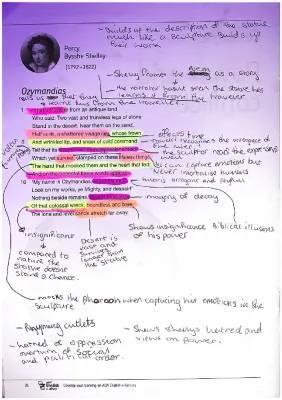 builds up the description of the statue
much like a sculpture builds up
their work
Percy
Bysshe Shelley
(1792–1822)
Shelley frames the poem as a story
the narrator hasn't seen the statue hes
learned from the traveller
Ozymandias
1 I met a traveller from an antique land
Who said: Two vast and trunkless legs of stone
Stand in the desert. Near them on the sand,
Half sunk, a shattered visage lies, whose frown
5 And wrinkled lip, and sneer of cold command
Tell that its sculptor well those passions read
Which yet survive, stamped on these lifeless things,
The hand that mocked them and the heart that fed;
And on the pedestal these words appear:
10 'My name is Ozymandias, king of kings:
Look on my works, ye Mighty, and despair!'
Nothing beside remains. Round the decay
Of that colossal wreck, boundless and bare,
The lone and level sands stretch far away.
effects time
the sculptor read the expressions
well
can capture emotions but
never
arrogant and
imagery of decay
insignificance
compared to
nature the
statue doesnt
stand a chance.
Desert is
vast and
survives
longer than
the statue
Shows insignificance Biblical illusions
of his power
mocks the pharoah when capturing his emotions in the
sculpture
- Rhyming cutlets
- hatred of oppression
overturn of social
and political order.
- Shows shellys hatred and
views on power.